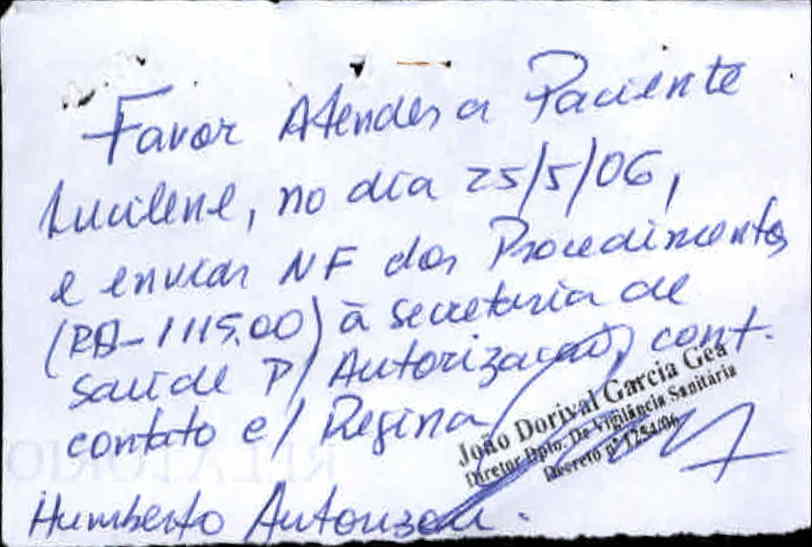 Favor Atender a Paciente
Lucilene, no dia 25/5/06,
e enviar NF dos Procedimentos
(R$-1115,00) à secretaria de
saúde P/ Autorização, cont.
contato c/ Regina
João Dorival Garcia Gea
Diretor Dpto. De Vigilância Sanitária
Decreto nº 1254/06
Humberto Autorizou.
RELATÓRIO